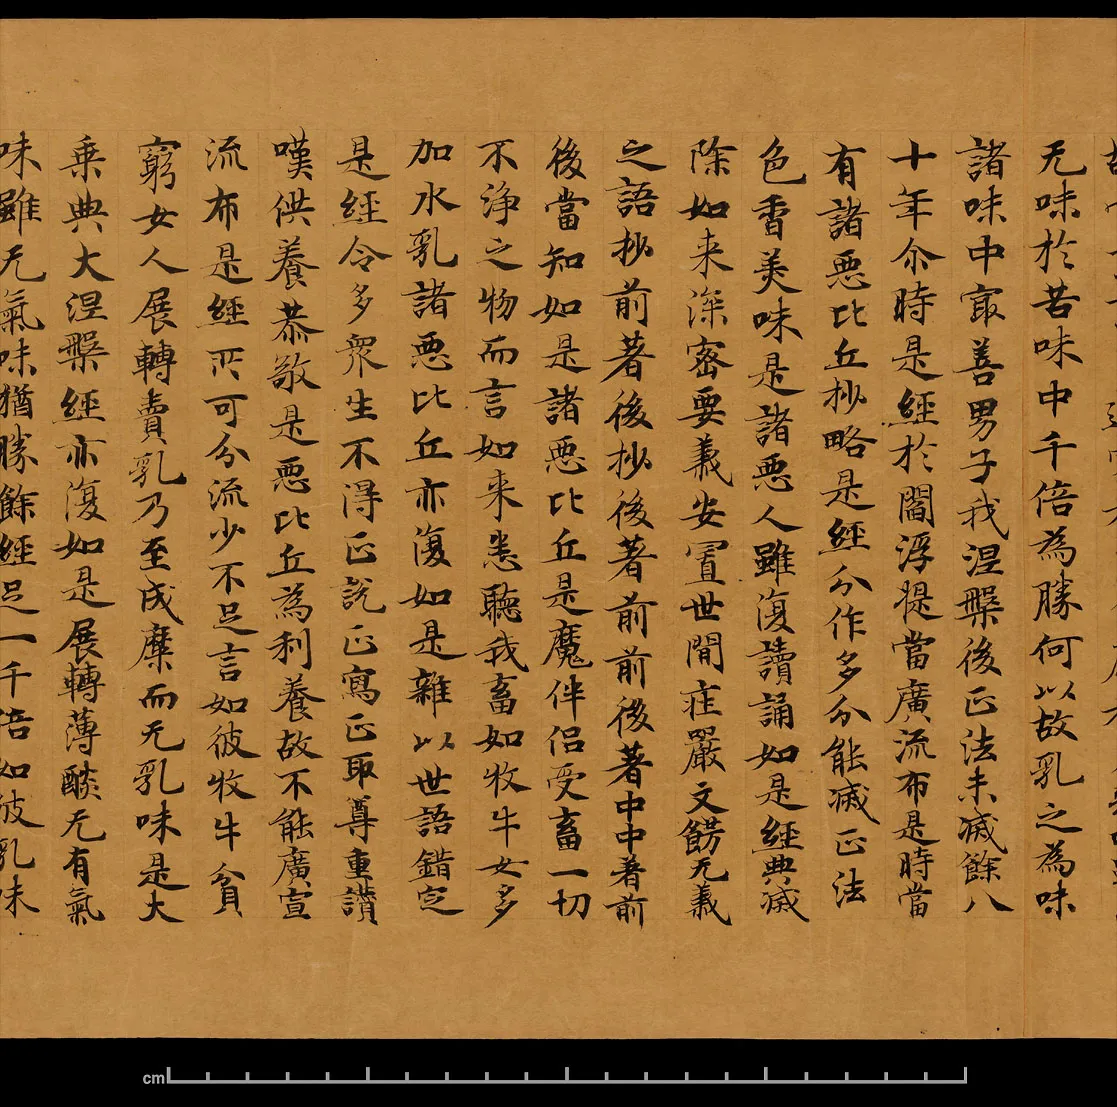 无味於苦味中千倍為勝何以故乳之為味
諸味中冣善男子我涅槃後正法未滅餘八
十年尒時是經於閻浮提當廣流布是時當
有諸惡比丘抄略是經分作多分能滅正法
色香美味是諸惡人雖復讀誦如是經典滅
除如来深密要義安置世間疰嚴文餝无義
之語抄前著後抄後著前前後著中中著前
後當知如是諸惡比丘是魔伴侣受畜一切
不淨之物而言如来悉聽我畜如牧牛女多
加水乳諸惡比丘亦復如是雜以世語錯㝎
是經令多衆生不得正說正寫正取尊重讚
嘆供養恭敬是惡比丘為利養故不能廣宣
流布是經所可分流少不足言如彼牧牛貧
窮女人展轉賣乳乃至成糜而无乳味是大
乗典大涅槃經亦復如是展轉薄醶无有氣
味雖无氣味猶勝餘經足一千倍如彼乳味